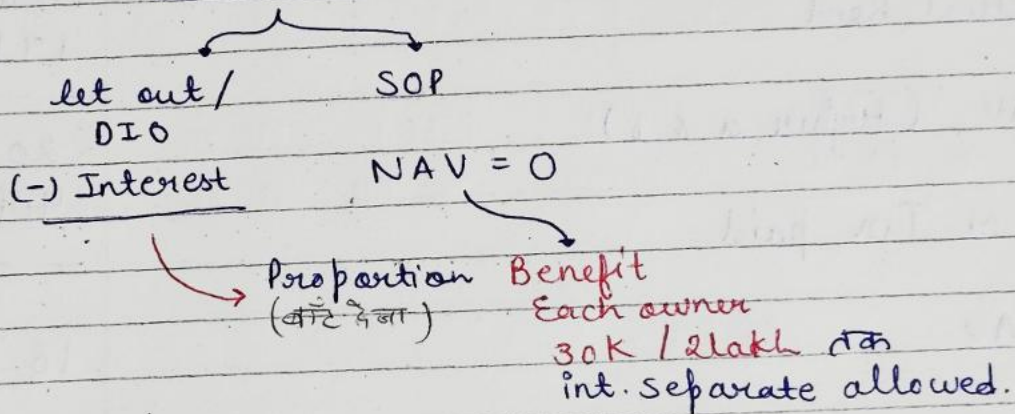 let out / SOP
DIO
(-) Interest NAV = 0
Proportion Benefit
(बाँट देना) Each owner
30K / 2lakh तक
int. separate allowed.